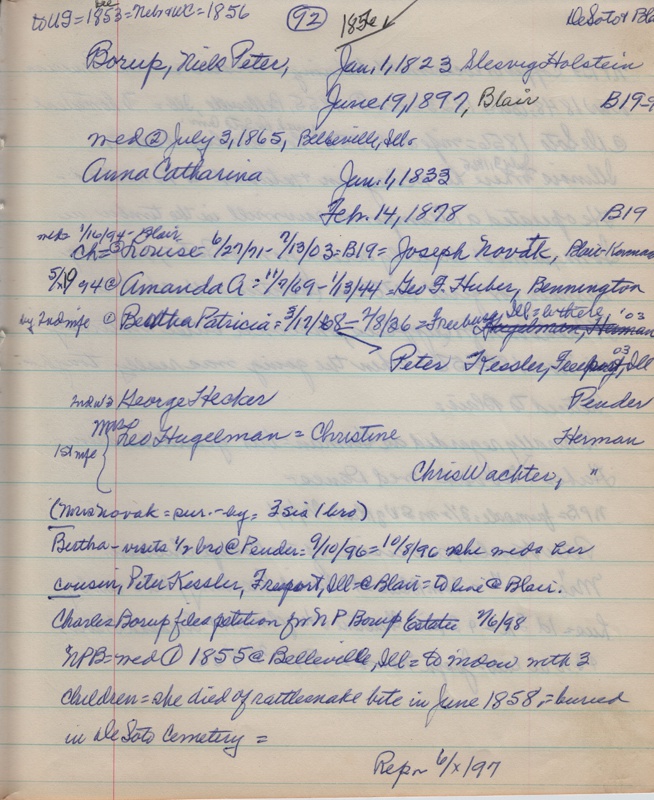 to US = 1853 = Neb & WC = 1856 (92) 1856 DeSoto & Bla
Borup, Niels Peter, Jan. 1, 1823 Slesvig Holstein
June 19, 1897, Blair B19-9
med ② July 3, 1865, Belleville, Ill.
Anna Catharina Jan. 1, 1833
Feb. 14, 1878 B19
1/16/94 - Blair
ch = ③ Louise = 6/27/71 - 7/13/03 = B19 = Joseph Novak, Blair-
5/x/94 ② Amanda A = 11/9/69 - 1/13/44 = Geo F. Huber, Bennington
by 2nd mfe ① Bertha Patricia = 3/12/68 = 7/8/36 = Freeburg, Ill = '03
Peter Kessler, Freeport, Ill 03
George Hecker Pender
1st mfe Mrs Leo Hugelman = Christine Herman
Chris Wachter, "
(Mrs Novak = sur. - by = 3 sis 1 bro)
Bertha - visits 1/2 bro @ Pender = 9/10/96 = 10/8/96 she meds her
cousin, Peter Kessler, Freeport, Ill @ Blair = to live @ Blair.
Charles Borup files petition for N P Borup Estate 7/6/98
NPB = med ① 1855 @ Belleville, Ill = to widow with 3
children = she died of rattlesnake bite in June 1858, = buried
in De Soto Cemetery =
Rep 6/x/97